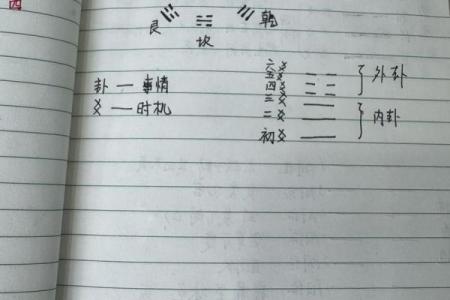 四
艮 ☵ 乾
坎
卦 — 事情
爻 — 时机
六爻
五爻
四爻
三爻
二爻
初爻
外卦
内卦